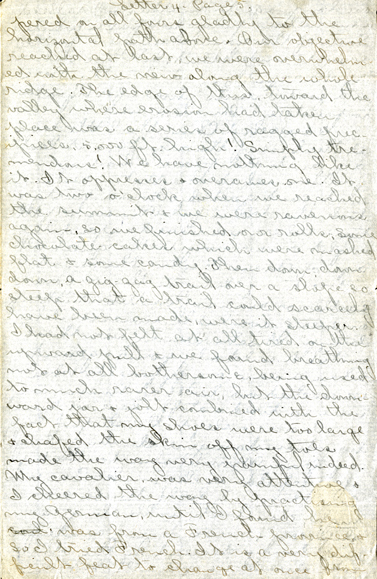 Letter 4. Page 5.
pered on all fours gladly to the
horizontal path above. Our objective
reached at last, we were overwhelm
ed with the view along the whole
ridge. The edge of this, toward the
valley where erosion had taken
place was a series of ragged prec
ipices, 5,000 ft. high! Simply tre
mendous! We have nothing like
it. It oppresses & overawes one. It
was two o'clock when we reached
the summit & we were ravenous
again, so we finished our rolls, some
chocolate cakes which were mashed
flat & some candy. Then down, down,
down, a zig zag trail over a slope so
steep that a trail could scarcely
have been made, were it steeper.
I had not felt at all tired on the
upward pull & we found breathing
not at all bothersome, being used
to much rarer air, but the down
ward jar & jolt combined with the
fact that my shoes were too large
& chafed the skin off my toes
made the way very painful indeed.
My cavalier was very attentive &
I cheered the way by practising
my German, until I found
was from a French province, &
so I tried French. It is a very dif
ficult feat to change at once from